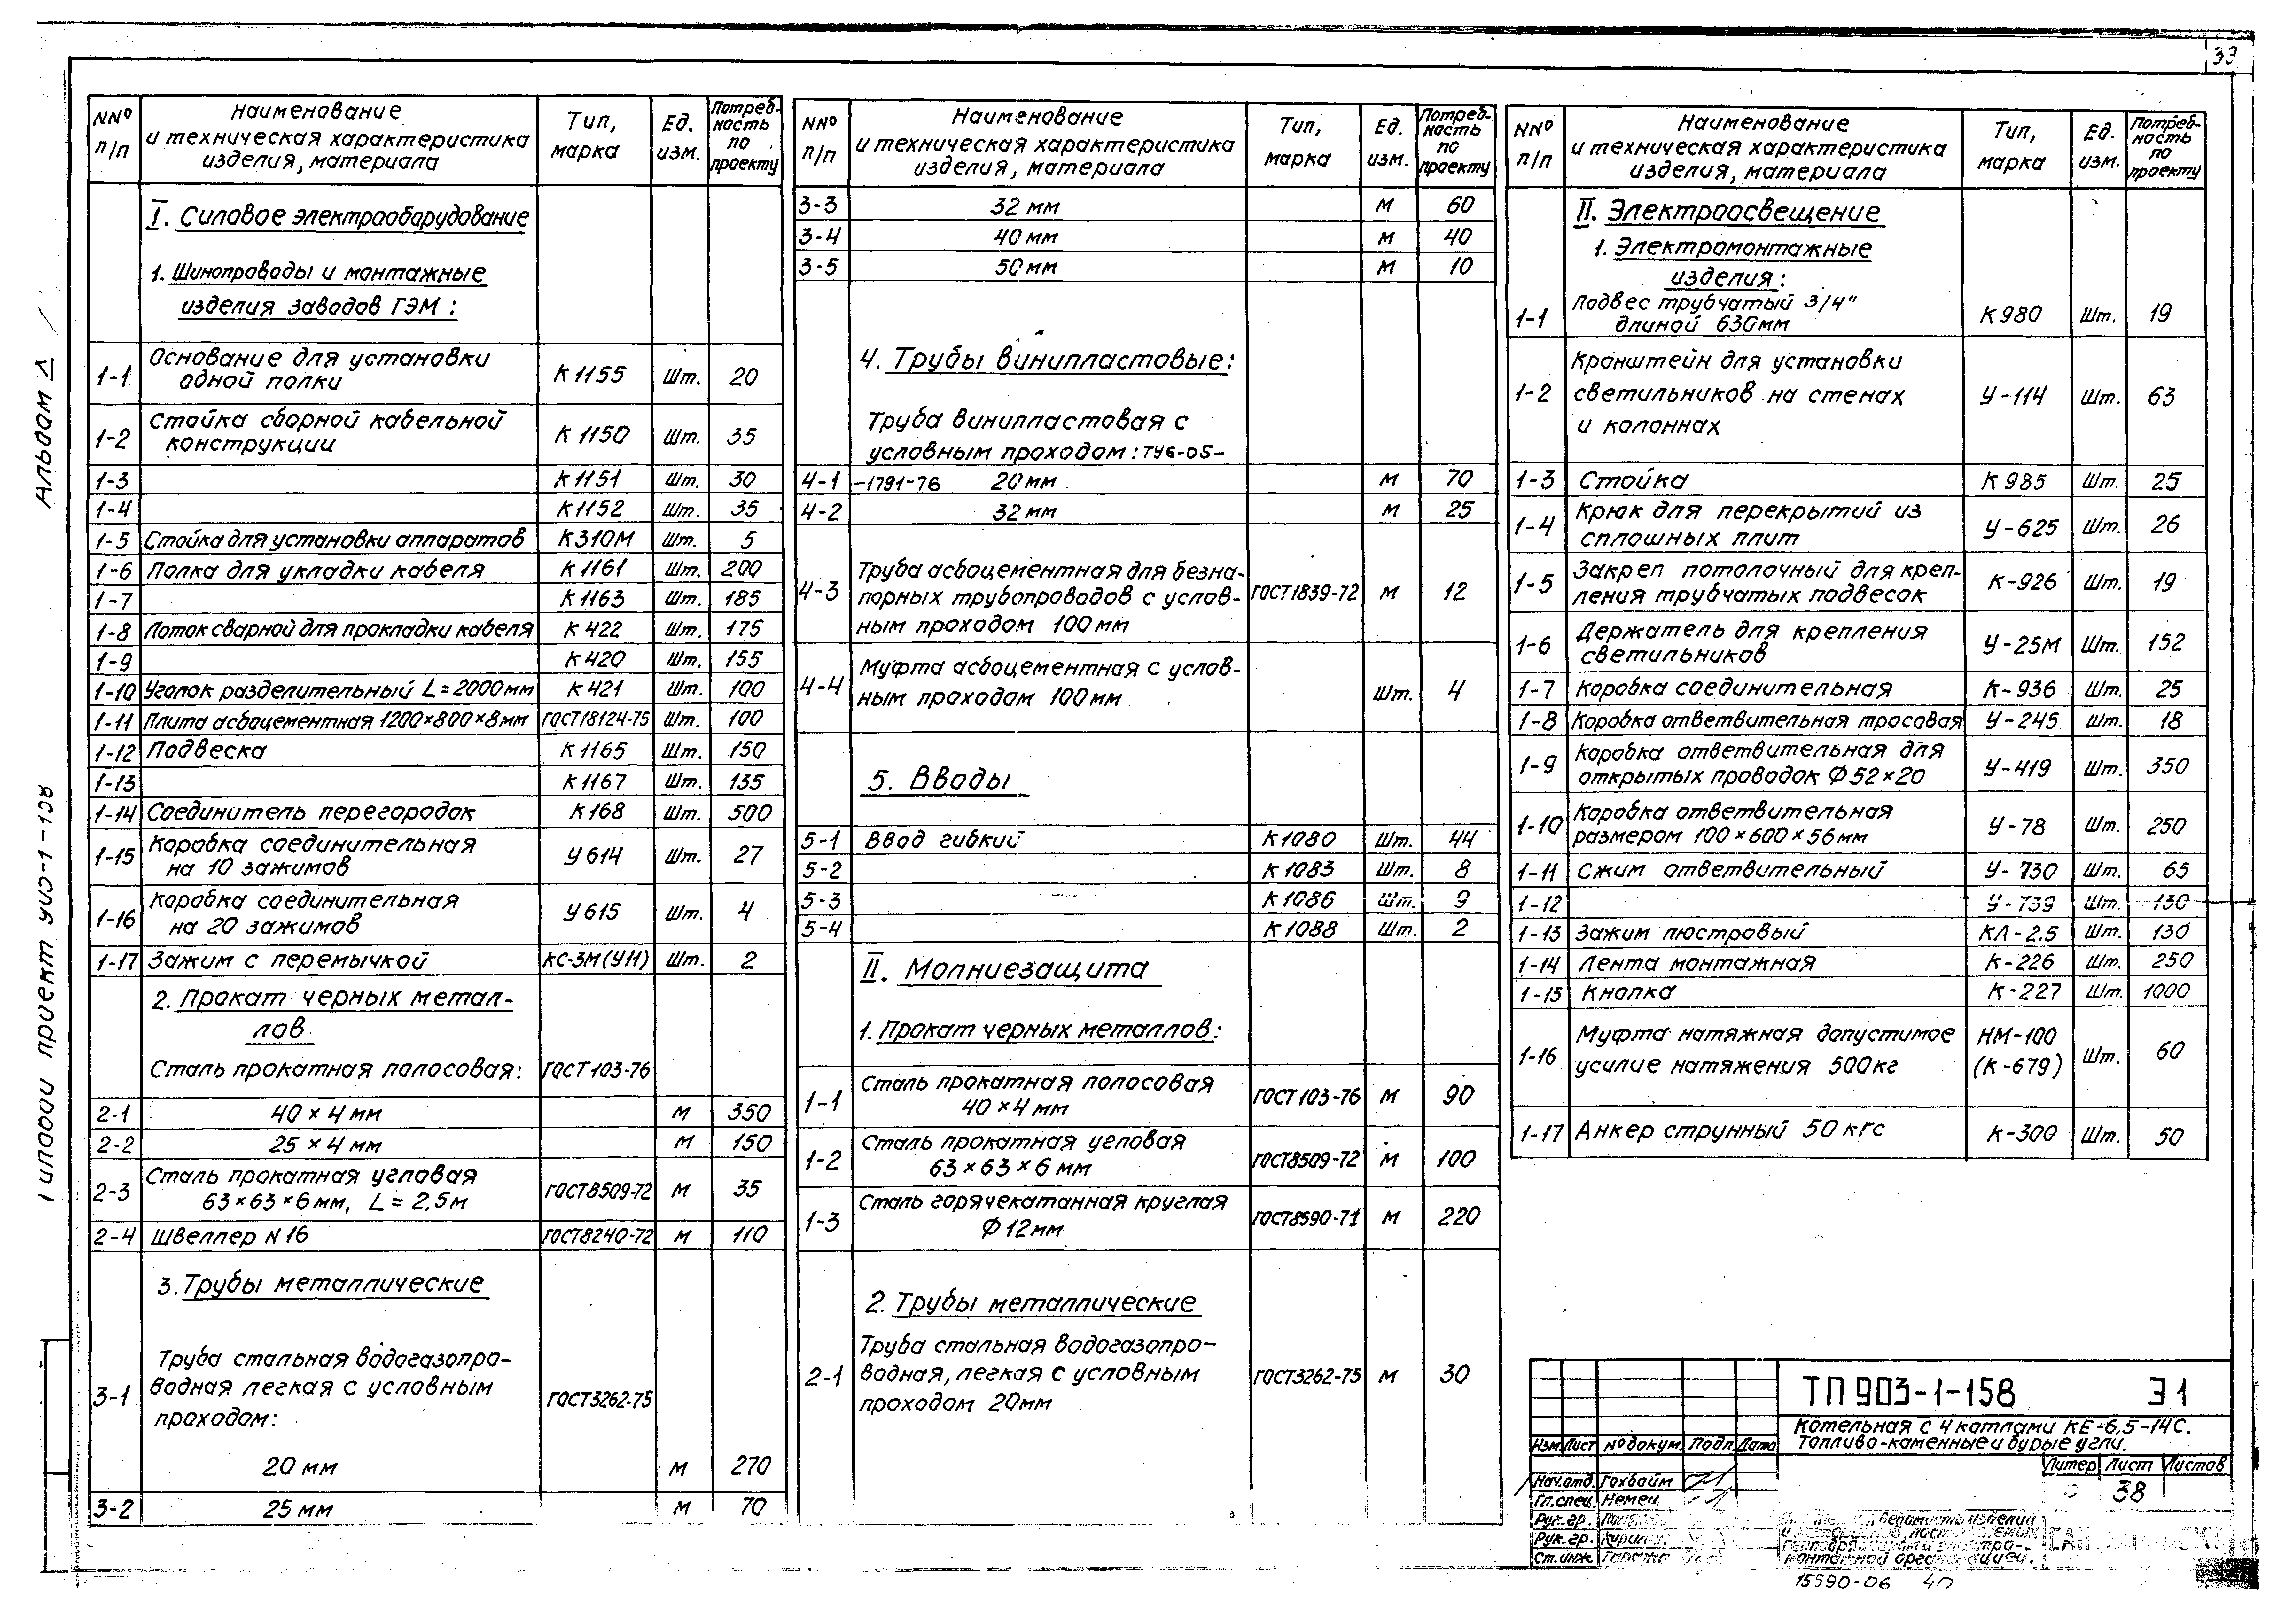 39
Альбом V
Типовой проект 903-1-158
NNº п/п | Наименование и техническая характеристика изделия, материала | Тип, марка | Ед. изм. | Потребность по проекту
I. Силовое электрооборудование
1. Шинопроводы и монтажные
изделия заводов ГЭМ:
1-1 Основание для установки одной полки К1155 Шт. 20
1-2 Стойка сборной кабельной конструкции К1150 Шт. 35
1-3 К1151 Шт. 30
1-4 К1152 Шт. 35
1-5 Стойка для установки аппаратов К310М Шт. 5
1-6 Полка для укладки кабеля К1161 Шт. 200
1-7 К1163 Шт. 185
1-8 Лоток сварной для прокладки кабеля К422 Шт. 175
1-9 К420 Шт. 155
1-10 Уголок разделительный L=2000мм К421 Шт. 100
1-11 Плита асбоцементная 1200×800×8мм ГОСТ18124-75 Шт. 100
1-12 Подвеска К1165 Шт. 150
1-13 К1167 Шт. 135
1-14 Соединитель перегородок К168 Шт. 500
1-15 Коробка соединительная на 10 зажимов У614 Шт. 27
1-16 Коробка соединительная на 20 зажимов У615 Шт. 4
1-17 Зажим с перемычкой КС-3М(У11) Шт. 2
2. Прокат черных метал-
лов
Сталь прокатная полосовая: ГОСТ103-76
2-1 40×4мм м 350
2-2 25×4мм м 150
2-3 Сталь прокатная угловая 63×63×6мм, L=2,5м ГОСТ8509-72 м 35
2-4 Швеллер N16 ГОСТ8240-72 м 110
3. Трубы металлические
3-1 Труба стальная водогазопро-
водная легкая с условным ГОСТ3262-75
проходом:
20мм м 270
3-2 25мм м 70
NNº п/п | Наименование и техническая характеристика изделия, материала | Тип, марка | Ед. изм. | Потребность по проекту
3-3 32мм м 60
3-4 40мм м 40
3-5 50мм м 10
4. Трубы винипластовые:
Труба винипластовая с
условным проходом: ТУ6-05-
4-1 -1791-76 20мм м 70
4-2 32мм м 25
4-3 Труба асбоцементная для безна-
порных трубопроводов с услов- ГОСТ1839-72 м 12
ным проходом 100мм
4-4 Муфта асбоцементная с услов-
ным проходом 100мм Шт. 4
5. Вводы
5-1 Ввод гибкий К1080 Шт. 44
5-2 К1083 Шт. 8
5-3 К1086 Шт. 9
5-4 К1088 Шт. 2
II. Молниезащита
1. Прокат черных металлов:
1-1 Сталь прокатная полосовая 40×4мм ГОСТ103-76 м 90
1-2 Сталь прокатная угловая 63×63×6мм ГОСТ8509-72 м 100
1-3 Сталь горячекатанная круглая Ф12мм ГОСТ8590-71 м 220
2. Трубы металлические
2-1 Труба стальная водогазопро-
водная, легкая с условным ГОСТ3262-75 м 30
проходом 20мм
NNº п/п | Наименование и техническая характеристика изделия, материала | Тип, марка | Ед. изм. | Потребность по проекту
II. Электроосвещение
1. Электромонтажные
изделия:
1-1 Подвес трубчатый 3/4" длиной 630мм К980 Шт. 19
1-2 Кронштейн для установки
светильников на стенах У-114 Шт. 63
и колоннах
1-3 Стойка К985 Шт. 25
1-4 Крюк для перекрытий из сплошных плит У-625 Шт. 26
1-5 Закреп потолочный для креп-
ления трубчатых подвесок К-926 Шт. 19
1-6 Держатель для крепления светильников У-25М Шт. 152
1-7 Коробка соединительная К-936 Шт. 25
1-8 Коробка ответвительная тросовая У-245 Шт. 18
1-9 Коробка ответвительная для открытых проводок Ф52×20 У-419 Шт. 350
1-10 Коробка ответвительная размером 100×600×56мм У-78 Шт. 250
1-11 Сжим ответвительный У-730 Шт. 65
1-12 У-739 Шт. 130
1-13 Зажим люстровый КЛ-2.5 Шт. 130
1-14 Лента монтажная К-226 Шт. 250
1-15 Кнопка К-227 Шт. 1000
1-16 Муфта натяжная допустимое усилие натяжения 500кг НМ-100 (К-679) Шт. 60
1-17 Анкер струнный 50кгс К-300 Шт. 50
ТП 903-1-158 Э1
Котельная с 4 котлами КЕ-6,5-14С.
Топливо-каменные и бурые угли.
Изм. Лист № докум. Подп. Дата
Литер Лист Листов
38
Нач.отд. Гохбойм
Гл.спец. Немец
Рук.гр.
Рук.гр.
Ст.инж.
ведомость изделий
монтажной организацией.
15590-06 40